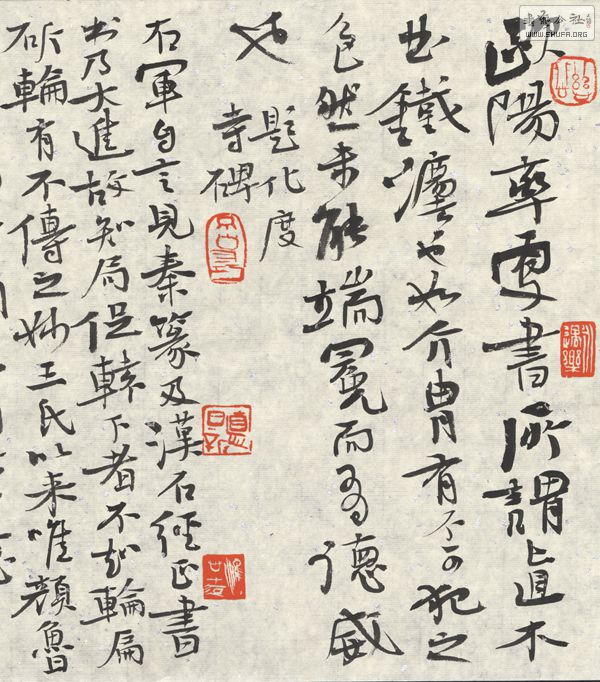 歐陽率更書所謂直木
曲鐵灋也如介胄有不可犯之
色然未能端冕而有德威
也
題化度
寺碑
右軍自言見秦篆及漢石經正書
書乃大進故知局促轅下者不知輪扁
斫輪有不傳之妙王氏以来唯顏魯
書法公社
WWW.SHUFA.ORG